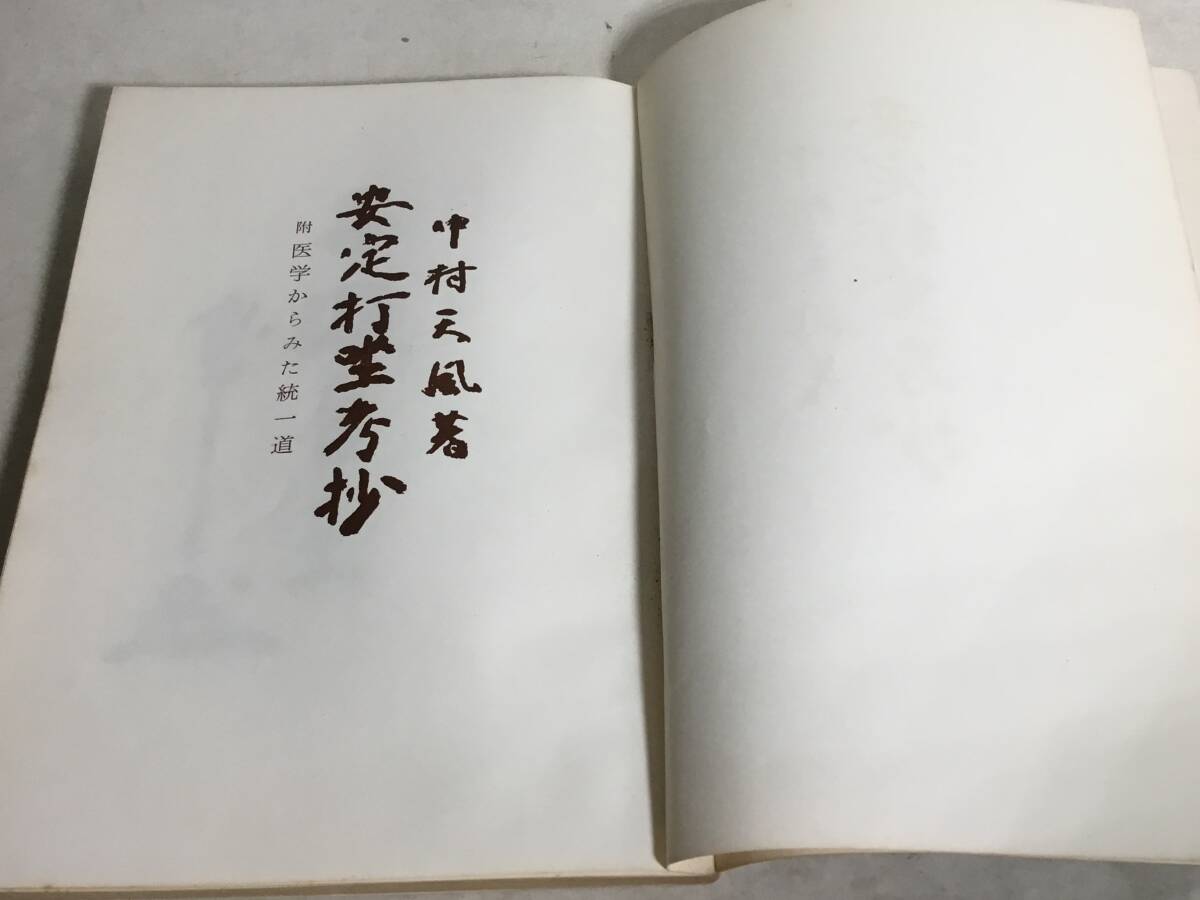 中村天風著
安定打坐考抄
附 医学からみた統一道